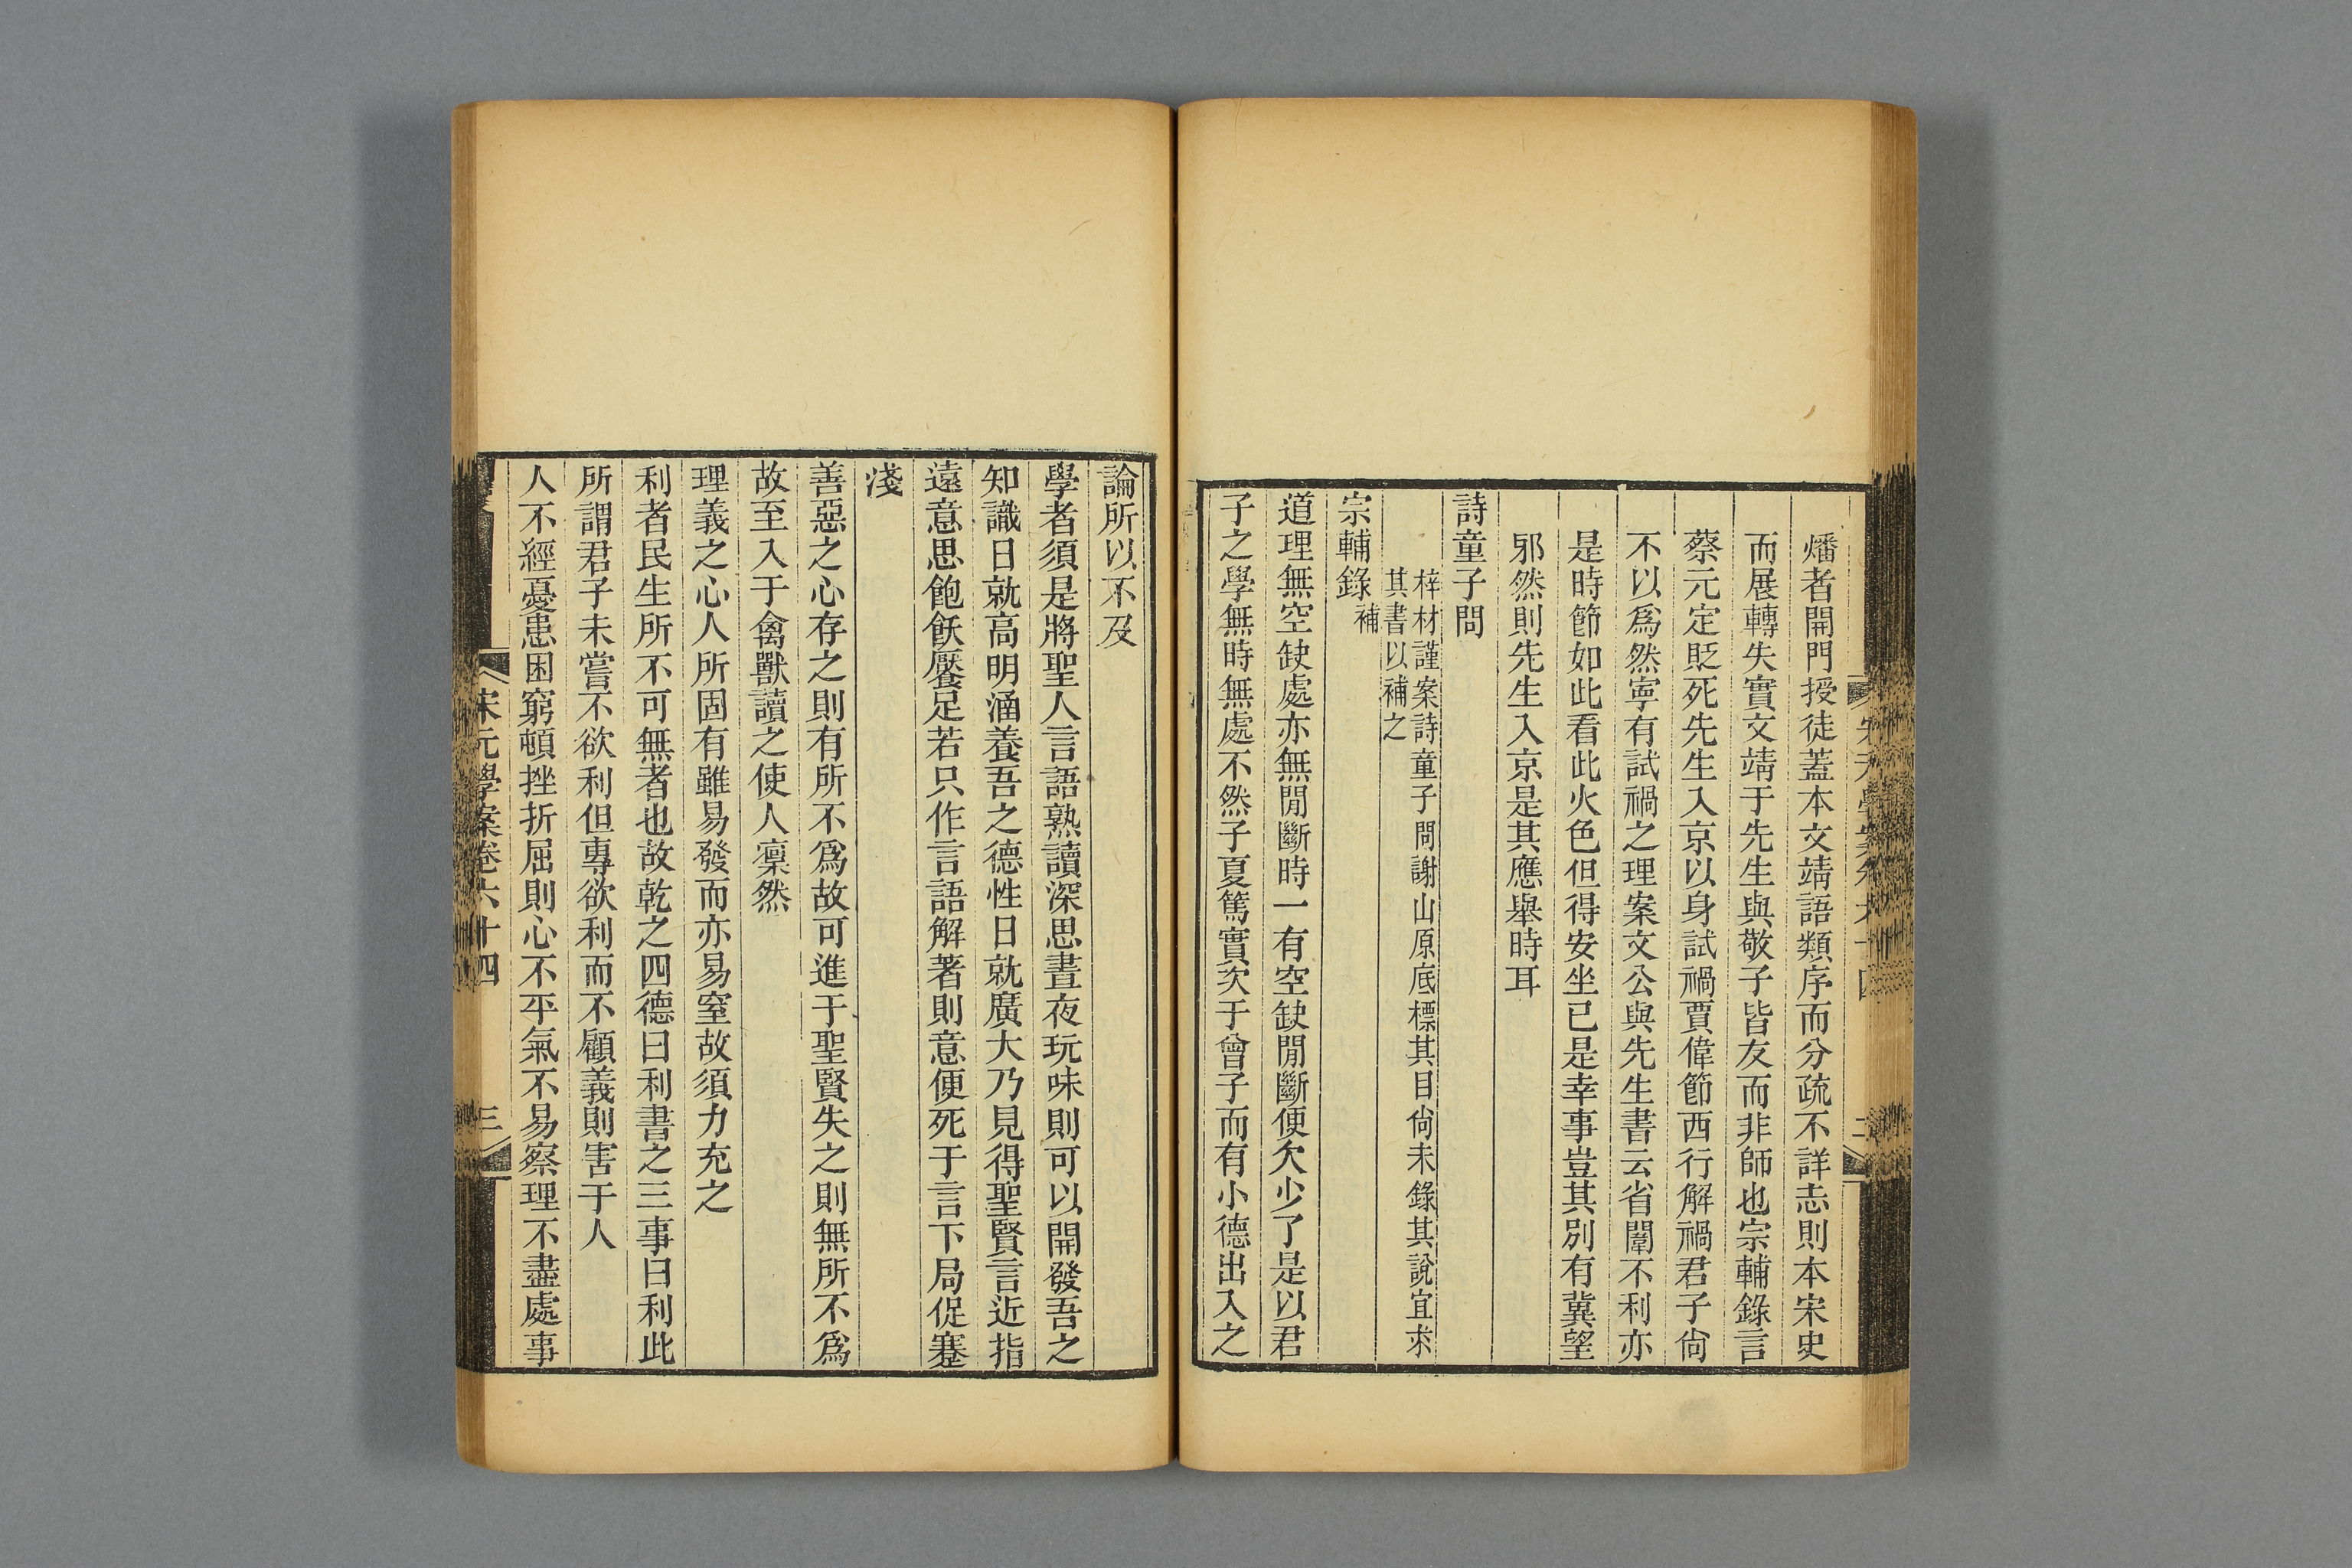 燔者開門授徒蓋本文靖語類序而分疏不詳志則本宋史
而展轉失實文靖于先生與敬子皆友而非師也宗輔錄言
蔡元定貶死先生入京以身試禍賈偉節西行解禍君子尙
不以爲然寜有試禍之理案文公與先生書云省闈不利亦
是時節如此看此火色但得安坐已是幸事豈其別有冀望
邪然則先生入京是其應舉時耳
詩童子問
梓材謹案詩童子問謝山原底標其目尙未錄其說宜求
其書以補之
宗輔錄補
道理無空缺處亦無閒斷時一有空缺閒斷便欠少了是以君
子之學無時無處不然子夏篤實次于曾子而有小德出入之
論所以不及
學者須是將聖人言語熟讀深思晝夜玩味則可以開發吾之
知識日就高明涵養吾之德性日就廣大乃見得聖賢言近指
遠意思飽飫饜足若只作言語解著則意便死于言下局促蹇
淺
善惡之心存之則有所不爲故可進于聖賢失之則無所不爲
故至入于禽獸讀之使人凜然
理義之心人所固有雖易發而亦易窒故須力充之
利者民生所不可無者也故乾之四德曰利書之三事曰利此
所謂君子未嘗不欲利但專欲利而不顧義則害于人
人不經憂患困窮頓挫折屈則心不平氣不易察理不盡處事
宋元學案卷六十四
三